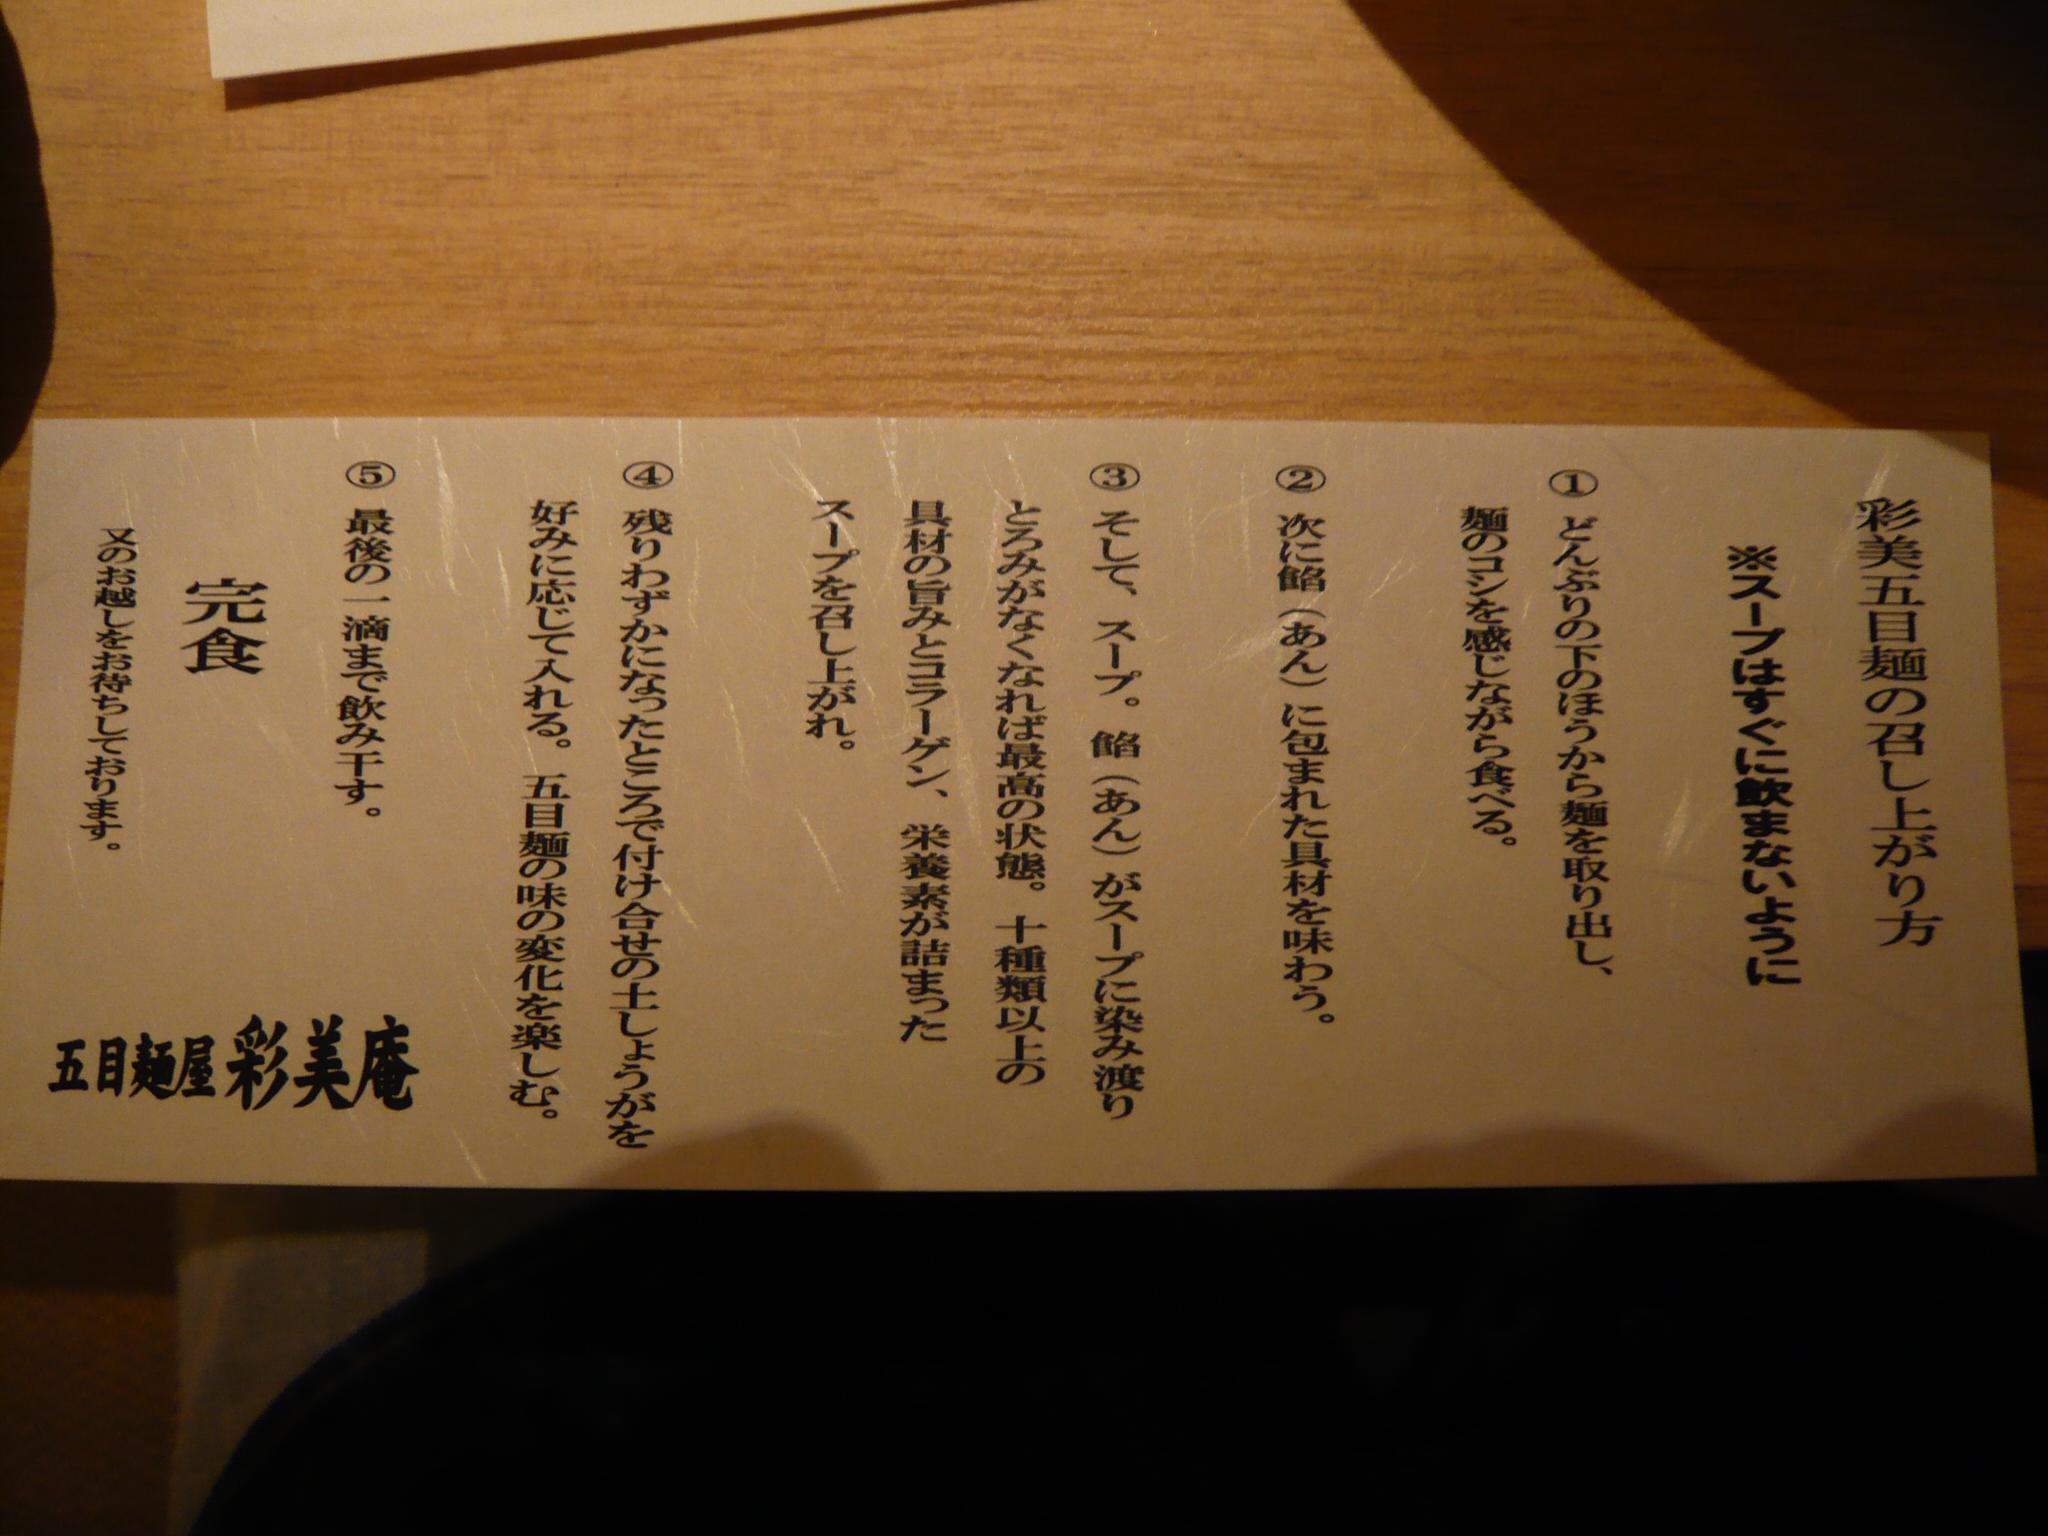 彩美五目麺の召し上がり方
※スープはすぐに飲まないように
① どんぶりの下のほうから麺を取り出し、
麺のコシを感じながら食べる。
② 次に餡（あん）に包まれた具材を味わう。
③ そして、スープ。餡（あん）がスープに染み渡り
とろみがなくなれば最高の状態。十種類以上の
具材の旨みとコラーゲン、栄養素が詰まった
スープを召し上がれ。
④ 残りわずかになったところで付け合せの土しょうがを
好みに応じて入れる。五目麺の味の変化を楽しむ。
⑤ 最後の一滴まで飲み干す。
完食
又のお越しをお待ちしております。
五目麺屋 彩美庵